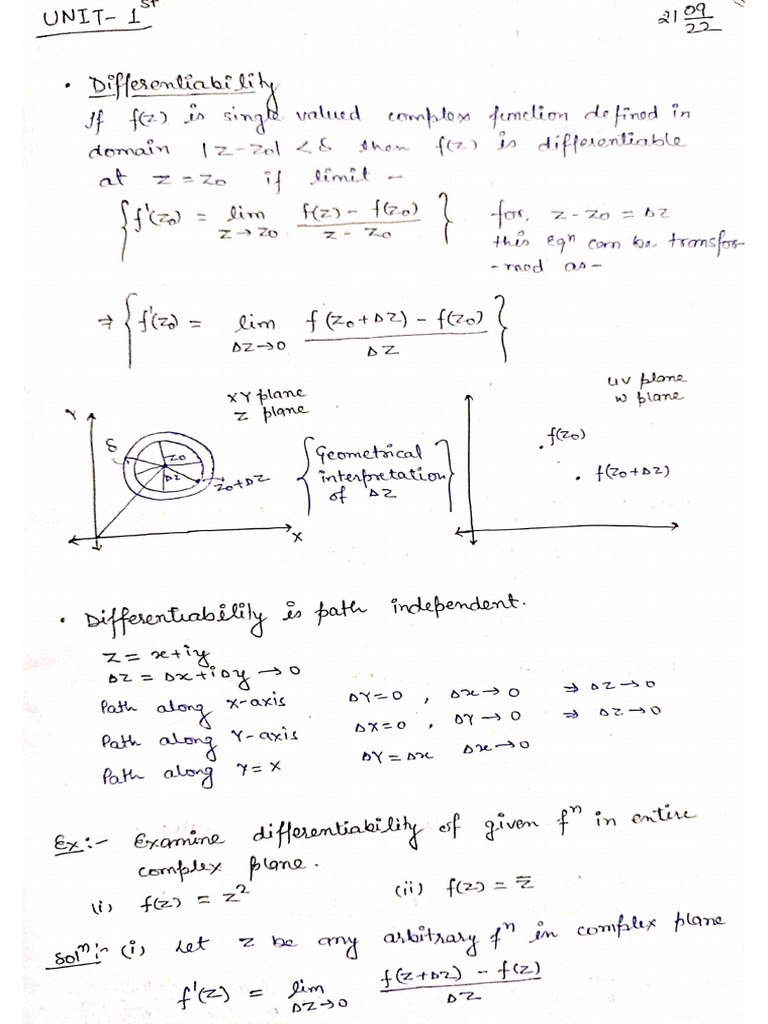 UNIT- 1st
21 09/22
• Differentiability
If f(z) is single valued complex function defined in
domain |z-z0| < δ then f(z) is differentiable
at z = z0 if limit -
{ f'(z0) = lim z→z0 f(z) - f(z0) / z - z0 } for, z - z0 = Δz
this eqn can be transfor-
-med as-
⇒ { f'(z0) = lim Δz→0 f(z0+Δz) - f(z0) / Δz }
XY plane
z plane
uv plane
w plane
Y
δ
z0
Δz
z0+Δz
X
{ Geometrical
interpretation
of Δz }
f(z0)
f(z0+Δz)
• Differentiability is path independent.
z = x+iy
Δz = Δx+iΔy → 0
Path along x-axis ΔY=0 , Δx→0 ⇒ Δz→0
Path along Y-axis ΔX=0 , ΔY→0 ⇒ Δz→0
Path along Y=X ΔY=Δx Δx→0
Ex:- Examine differentiability of given fn in entire
complex plane.
(i) f(z) = z² (ii) f(z) = z̄
Soln:- (i) Let z be any arbitrary fn in complex plane
f'(z) = lim Δz→0 f(z+Δz) - f(z) / Δz